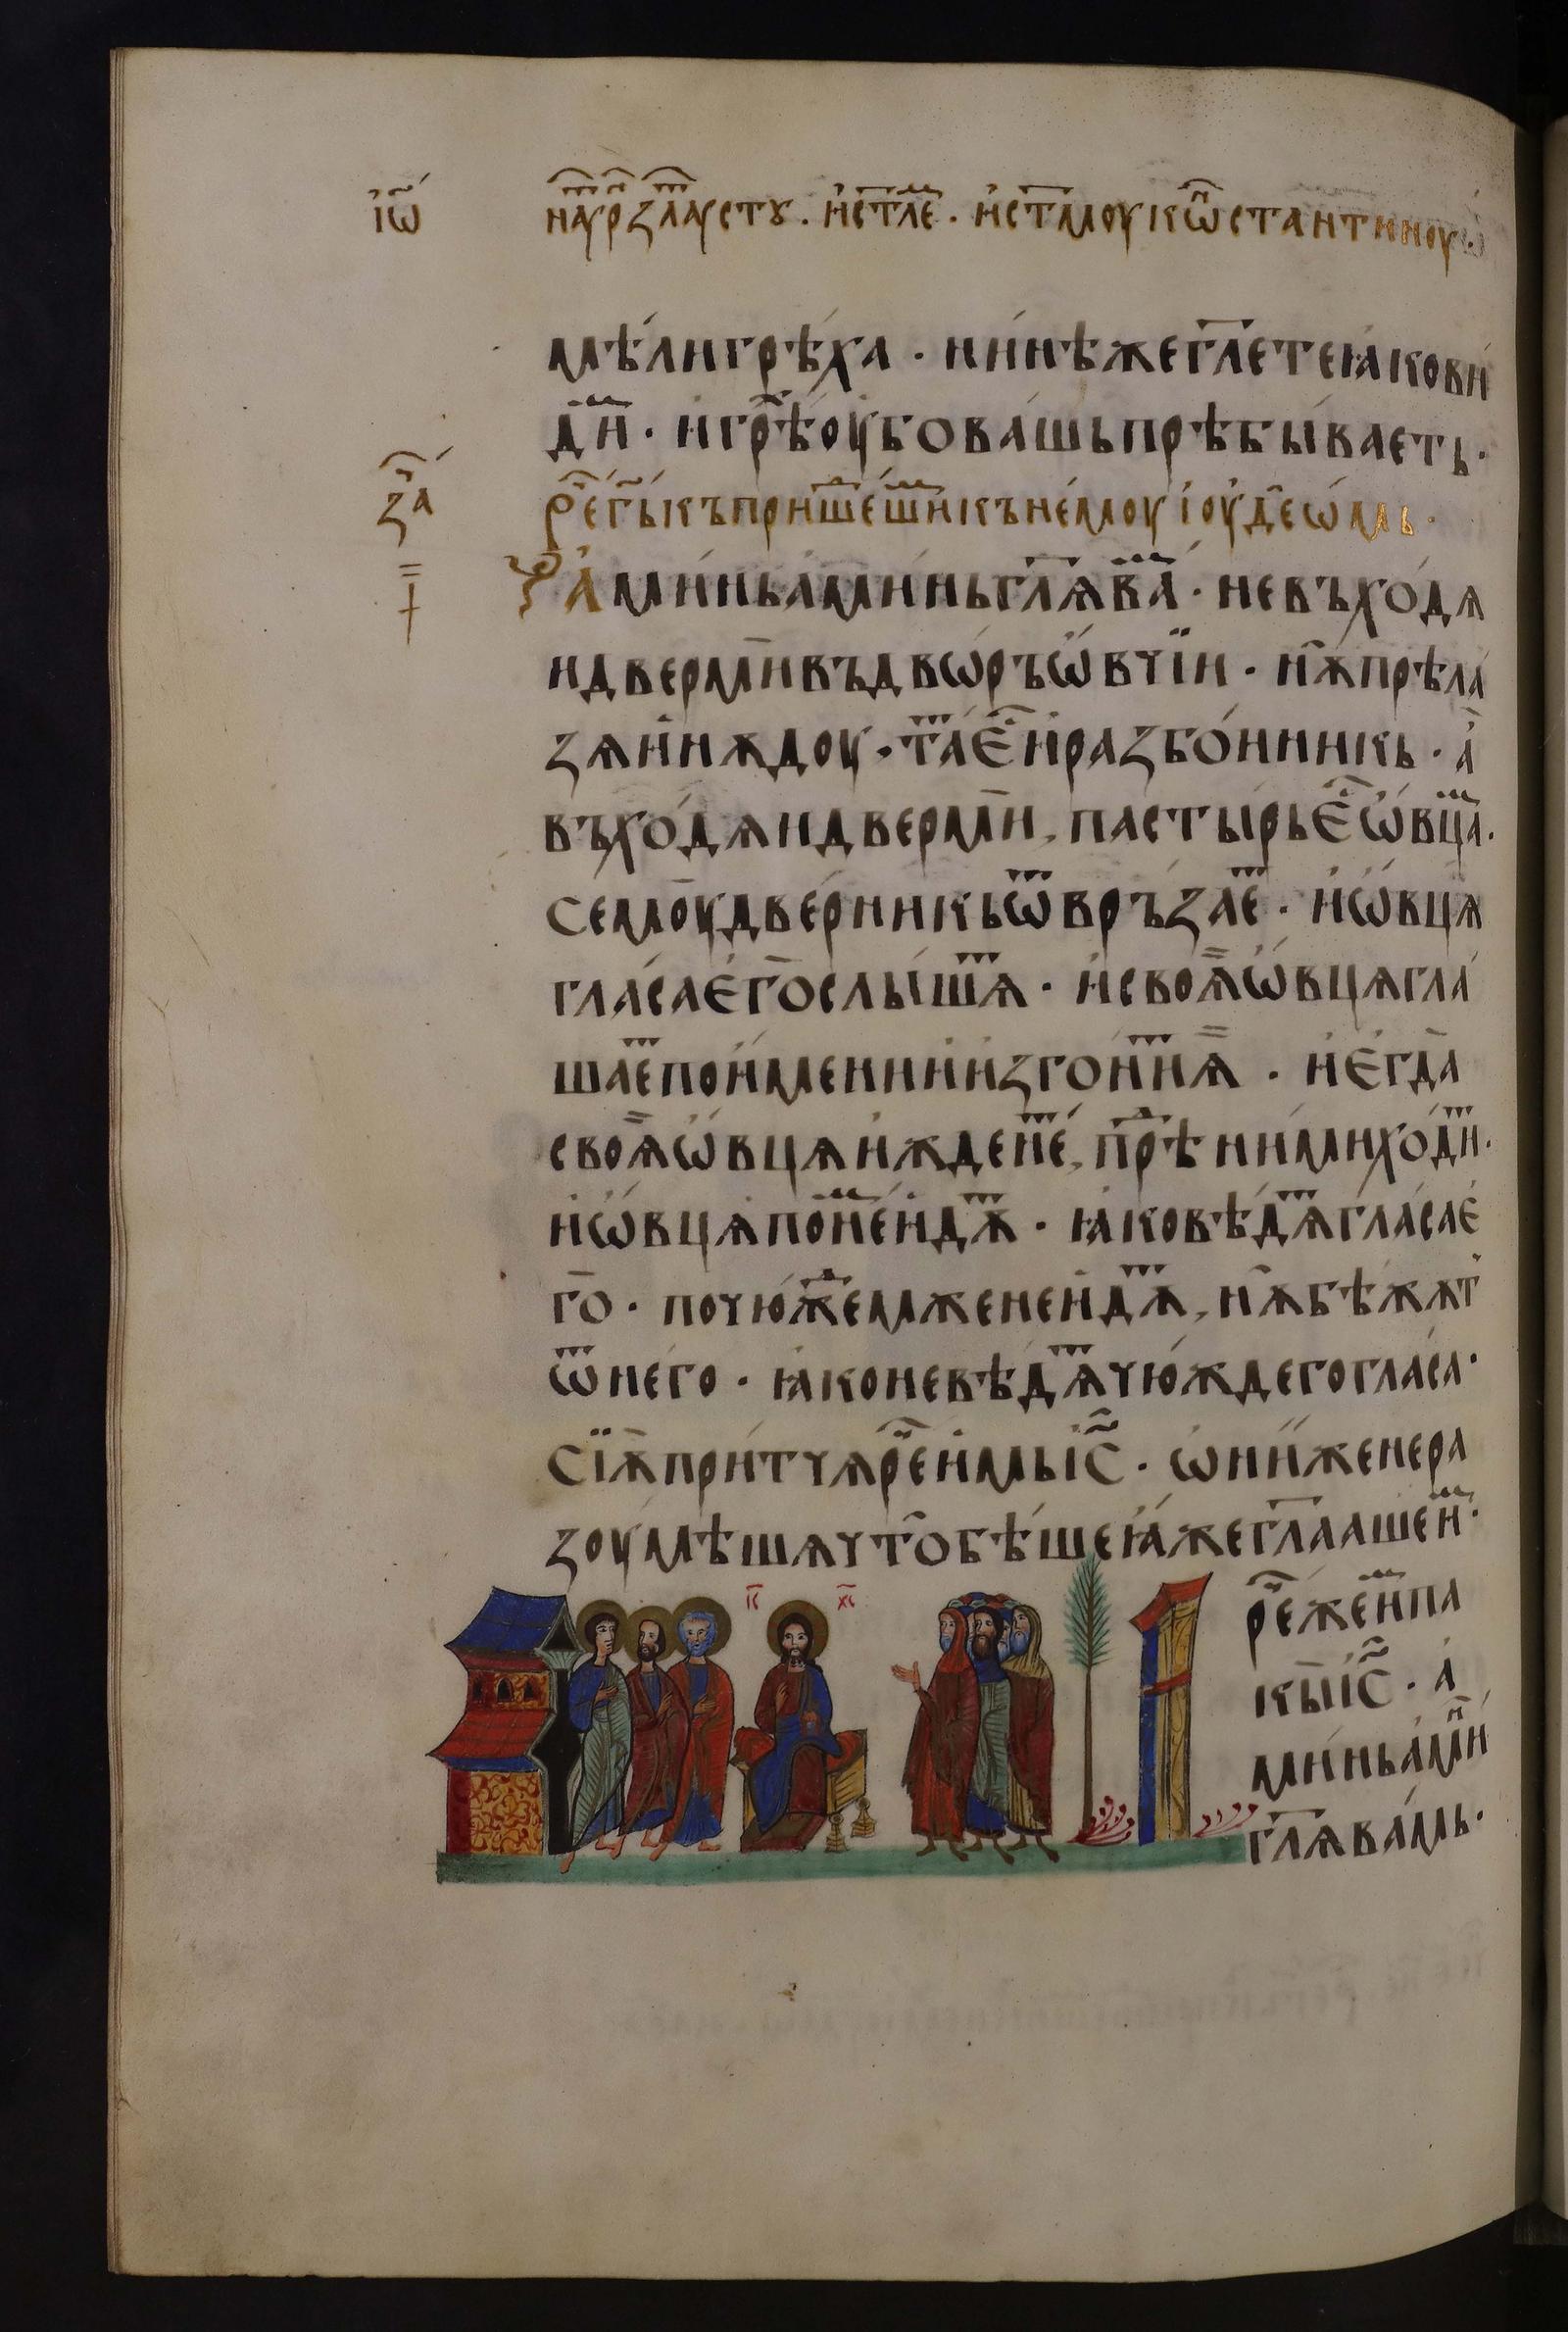 іѡ҃ и҆ аⷩ҇ р зⷧ҇аⷮусту . и҆ стл҃е . и҆ ст҃моу кѡⷩ҇стантиноу ѡ҆
мѣ́ли грѣ́ха · ни́нѣже гл҃ете ꙗ҆ко ви
ди́м · и҆ грѣⷯ҇ оу҆бо ва́шь прѣбы́ваеть ·
за҃ч реⷱ҇ г҃ь къ пришеⷣшиⷨ къ не́моу і҆оу҆деѡⷨмь ·
А҆ми́нь а҆ми́нь гл҃ѫ ваⷨ · не въхо́дѧ
и дверми въ двѡ́ръ ѡ҆вчїи · нѫ прѣла́
зѧ и҆нѫдоу · таⷮ е҆ⷭ҇ и҆ разбо́иникь · а҆
въхо́дѧи дверми , пастырь е҆ⷭ҇ ѡ҆вцаⷨ ·
семоу две́рникь ѿвръзаеⷮ · и҆ ѡ҆вцѧ
гла́са е҆го слы́шѧⷮ · и҆ своѧ ѡ҆вцѧ гла
шаеⷮ по и҆мени и҆ и҆згониⷮ ѧ · и҆ е҆гда
своѧ ѡ҆вцѧ и҆жденеⷮ , прѣⷣ ни́ми хо́диⷮ ·
и҆ ѡ҆вцѧ по неⷨ и҆дѫⷮ · ꙗ҆ко вѣ́дѧⷮ гла́са е҆
го · по чюжеⷣмже не и҆дѫⷮ , нѫ бѣжѧт
ѿ него · ꙗ҆ко не вѣ́дѧⷮ чюждего гла́са ·
Сїѫ при́тчѫ реⷱ҇ и҆мь і҆с҃ · ѡ҆ни́ же не ра
зоумѣшѧ что бѣ́ше ꙗ҆же гл҃ааше иⷨ ·
і҃с х҃с
реⷱ҇ же иⷨ па
кы і҆с҃ · а҆
ми́нь а҆миⷩ
гл҃ѫ ва́мь ·